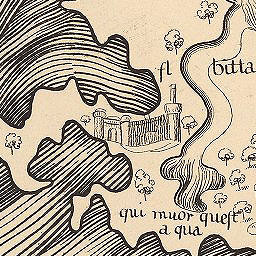 fl bitta
qui muor quest
a qua